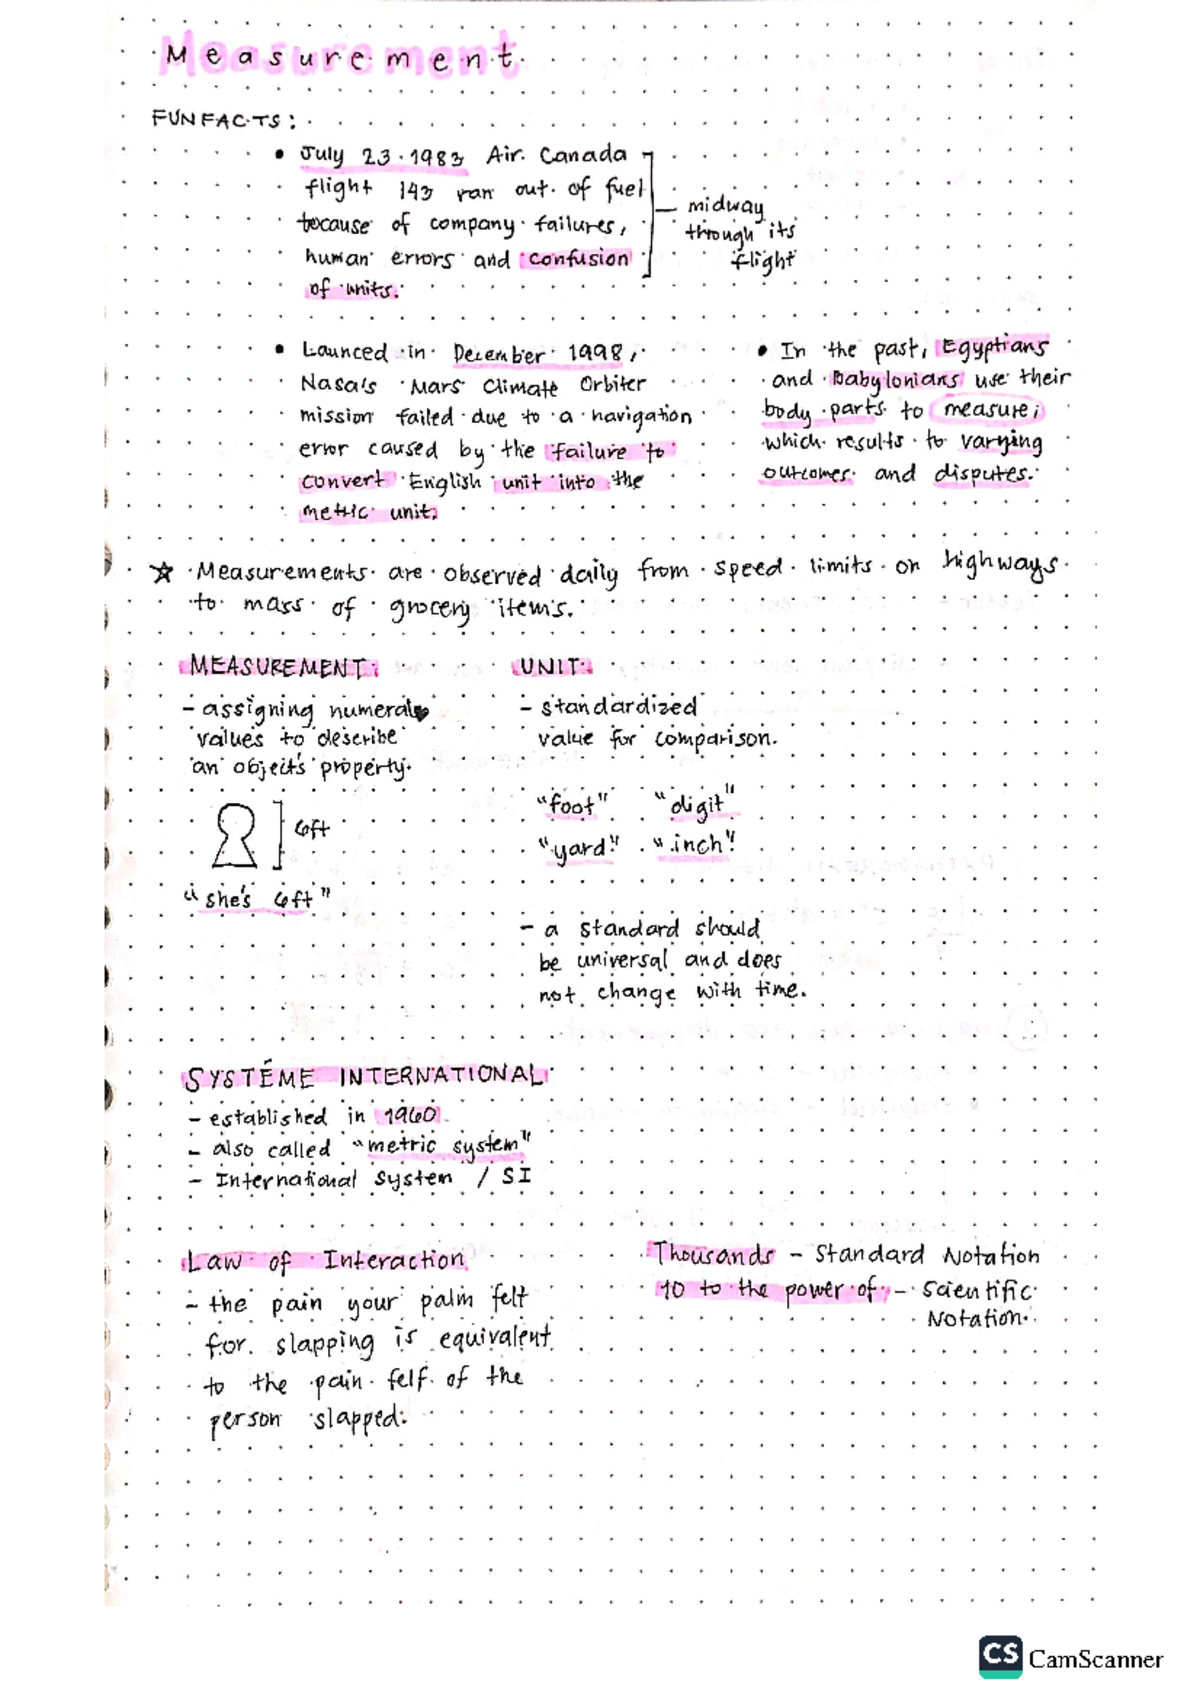 Measurement
FUN FACTS:
• July 23 1983 Air Canada
flight 143 ran out of fuel
because of company failures,
human errors and confusion
of units.
midway
through its
flight
• Launced in December 1998,
Nasa's Mars Climate Orbiter
mission failed due to a navigation
error caused by the failure to
convert English unit into the
metric unit.
• In the past, Egyptians
and Babylonians use their
body parts to measure,
which results to varying
outcomes and disputes.
☆ Measurements are observed daily from speed limits on highways
to mass of grocery items.
MEASUREMENT:
- assigning numeral
values to describe
an object's property.
6ft
"she's 6ft"
UNIT:
- standardized
value for comparison.
"foot" "digit"
"yard" "inch"
- a standard should
be universal and does
not change with time.
SYSTÉME INTERNATIONAL
- established in 1960
- also called "metric system"
- International system / SI
Law of Interaction
- the pain your palm felt
for slapping is equivalent
to the pain felf of the
person slapped.
Thousands - Standard Notation
10 to the power of - Scientific
Notation.
CS CamScanner